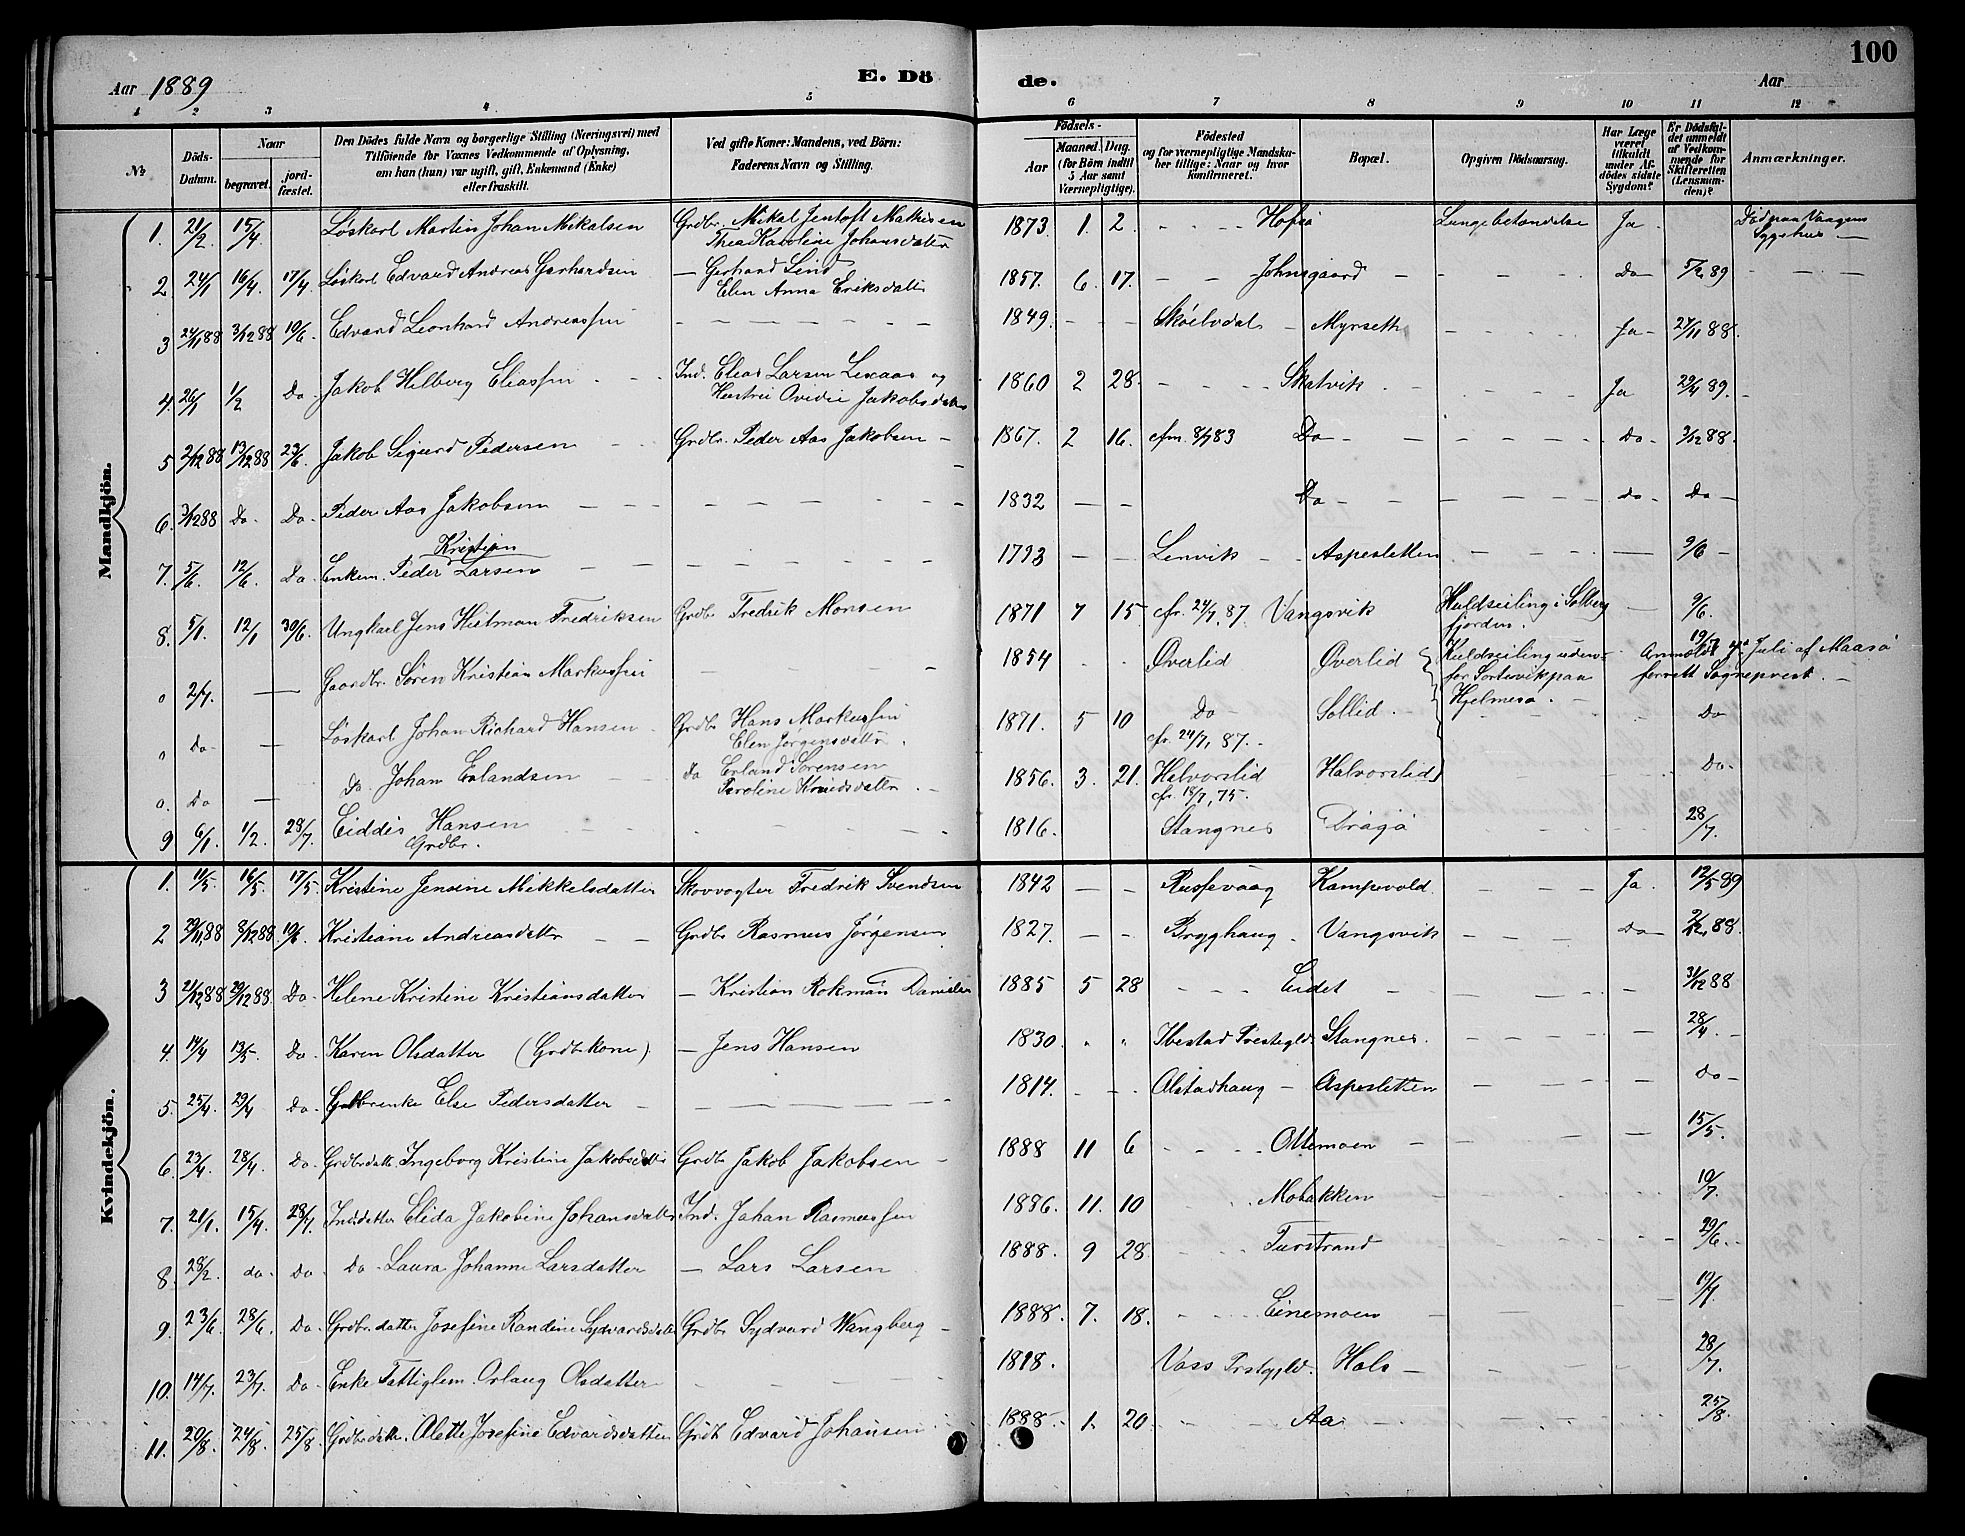 100
Aar 1889
E. Dö
de.
Aar
1 2 3 4 5 6 7 8 9 10 11 12
№
Döds-Datum.
Naar
begravet.
jord-fæstet.
Den Dödes fulde Navn og borgerlige Stilling (Næringsvei) med
Tilföiende for Voxnes Vedkommende af Oplysning,
om han (hun) var ugift, gift, Enkemand (Enke)
eller fraskilt.
Ved gifte Koner: Mandens, ved Börn:
Faderens Navn og Stilling.
Födsels-
Aar
Maaned. Dag.
(for Börn indtil
5 Aar samt
Værnepligtige).
Födested
og for værnepligtige Mandska-
ber tillige: Naar og hvor
konfirmeret.
Bopæl.
Opgiven Dödsaarsag.
Har Læge
været
tilkaldt
under Af-
dödes sidste
Sygdom?
Er Dödsfal-
det anmeldt
af Vedkom-
mende for
Skifteretten
(Lensman-
den)?
Anmærkninger.
Mandkjön.
1. 21/2. 15/4. Løskarl Martin Johan Mikalsen Grdbr. Mikal Jentoft Mathisen 1873. 1. 2. - - - Hofsø Lungebetændelse Ja. Död paa Vaagens
Thea Karoline Johansdatter Sygehus -
2 24/1 16/4. 17/4. Løskarl Edvard Andreas Gerhardsen — Gerhard Lind 1857. 6. 17. - - Johnsgaard - - Do 5/2 89 - - -
Elen Anna Eriksdatter
3 24/11 88 3/12 88 10/6. Edvard Leonhard Andreassen - - - 1849. - - Skøelvdal - Myrseth - - - Ja - 27/11 88.
4. 26/1 1/2 Do - Jakob Hilberg Eliassen - - Ind. Elias Larsen Lexaas og 1860 2 28. - - - Skatvik - - - Ja 29/4 89. -
Hustru Ovidie Jakobsdatter
5 2/12 88 13/12 88 23/6. Jakob Sigurd Pedersen - - Grdbr. Peder Aas Jakobsen - 1867. 2 16. cfm. 8/7 83 Do - - - - Do - 3/12 88.
6. 3/12 88 Do - Do - Peder Aas Jakobsen - - - - - 1832 - - Do - - - - do - Do -
7. 5/6. 12/6. Do. Enkem. Peder Kristian Larsen - - - - 1793 - - Lenvik - - Aspesletten - - - - 9/6 -
8. 5/1. 12/1 30/6. Ungkarl Jens Hilmar Fredriksen Grdbr Fredrik Monsen 1871 7 15 cfr. 24/7, 87. Vangsvik Kuldseiling i Solberg - 9/6.
fjorden.
o 2/7. - Gaardbr. Søren Kristian Markussen - - 1854 - - Øverlid Øverlid Kuldseiling uden- 19/7 Anmeldt 4de Juli af Maasø
for Sortevik paa forrett Sogneprest. -
o Do - - Løskarl Johan Richard Hansen - Grdbr Hans Markussen 1871. 5 10 Do - Sollid - - Hjelmesø. - - Do
Elen Jørgensdatter. cfr. 24/7, 87. -
o. Do - Do. Johan Erlandsen - - Do Erland Sørensen 1856. 3. 21. Halvorslid Halvorslid - - - Do -
Paroline Knudsdatter. - cfr. 18/7, 75 -
9 6/1 1/2. 28/7. Eiddis Hansen - - - - 1816. Stangnes Drågø - - - 28/7.
Grdbr.
Kvindekjön.
1. 11/5. 16/5. 17/5 Kristine Jensine Mikkelsdatter Skovvogter Fredrik Svendsen 1842 - - Russevaag Kampevold. - - - Ja. 12/5 89
2 29/11 88 8/12 88. 10/6. Kristiane Andreasdatter - - Grdbr Rasmus Jørgensen 1827. - - Brygghaug - Vangsvik - - - Do - 2/12, 88.
3 21/12 88 29/12 88. Do - Helene Kristine Kristiansdatter - Kristian Rokman Danielsen 1885 5 28 - - - Eidet - - - - 31/12 88
4. 14/4 13/5. Do - Karen Olsdatter (Grdbr. kone). - Jens Hansen 1830. " " Ibestad Prestegld. Stangnes. - - - - 28/4. -
5. 25/4. 29/4 Do. Grdbrenke Else Pedersdatter - - - - 1814. - - Alstadhaug - Aspesletten - - - - Do -
6. 23/4. 28/4. Do - Grdbrdatter Ingeborg Kristine Jakobsdatter Grdbr Jakob Jakobsen - 1888 11 6 - - - Ottemoen - - - - 15/5.
7. 21/1. 15/4. 28/7. Indsdatter Elida Jakobine Johansdatter Ind. Johan Rasmussen 1886. 11. 10 - Mobakken - - - 10/7.
8. 28/2. do - Do - Do - Laura Johanne Larsdatter - Lars Larsen 1888. 9 28. - - Furstrand - - - 29/6. -
9. 23/6. 28/6. Do - Grdbr. datter Josefine Randine Sydvardsdatter Grdbr Sydvard Wangberg - 1888. 7. 18. - - - Einemoen - - - 10/7.
10. 14/7. 23/7. Do - Enke Fattiglem. Orlaug Olsdatter - - - - 1818. Voss Prstgjld. Hals - - - - 28/7.
11. 20/8. 24/8. 25/8. Grdbrdatter. Alette Josefine Edvardsdatter Grdbr Edvard Johansen - 1888. - 1. 20. - - - Aa - - - 25/8.